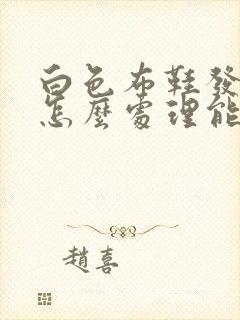 白色布鞋發
怎麼處理能
趙喜